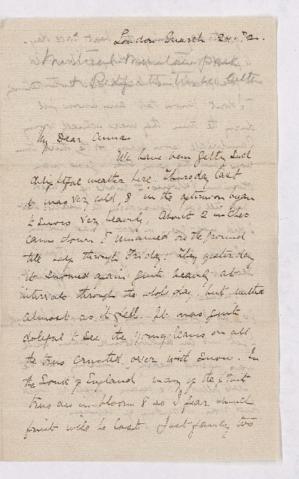 London March 24. 72.
My Dear Anna
We have been getting such
delightful weather here. Thursday last
it was very cold, & in the afternoon began
to snow very heavily. About 2 inches
came down & remained on the ground
till half through Friday. Then yesterday
it snowed again quite heavily at
intervals through the whole day, but melted
almost as it fell. It was quite
doleful to see the young leaves on all
the trees crusted over with snow. In
the South of England many of the fruit
trees are in bloom & so I fear much
fruit will be lost. Just fancy two